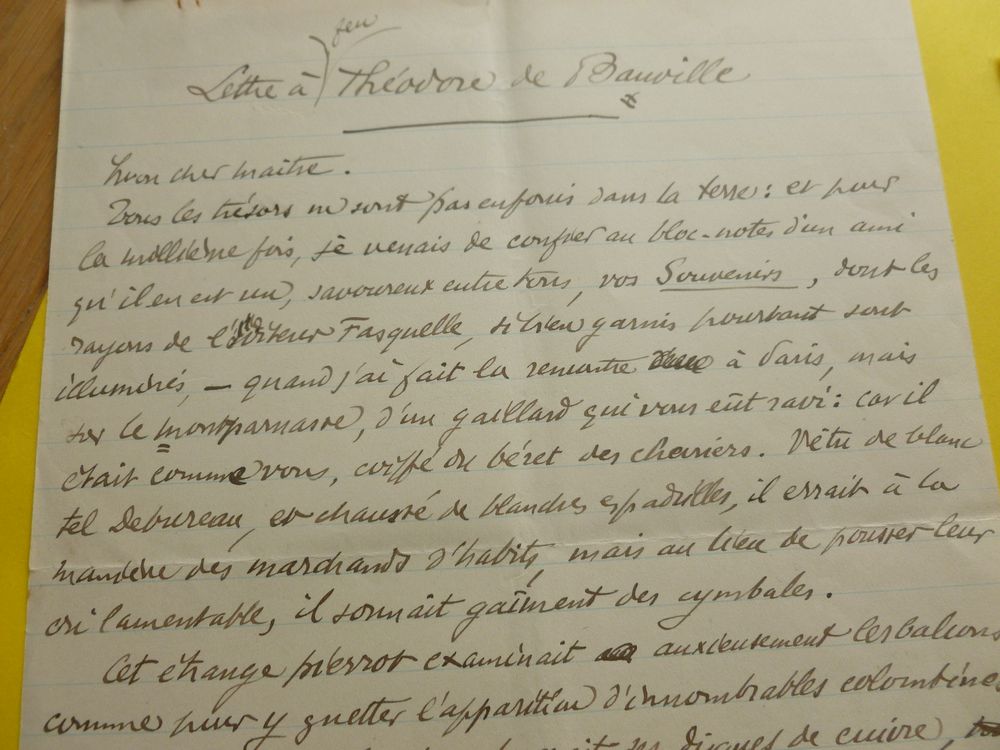 feu
Lettre à Théodore de Banville
Mon cher maître.
Tous les trésors ne sont pas enfouis dans la terre : et pour
la millième fois, je venais de confier au bloc-notes d'un ami
qu'il en est un, savoureux entre tous, vos Souvenirs, dont les
rayons de l'éditeur Fasquelle, si bien garnis pourtant sont
illuminés, — quand j'ai fait la rencontre à Paris, mais
sur le montparnasse, d'un gaillard qui vous eût ravi : car il
était comme vous, coiffé du béret des chemiers. Vêtu de blanc
tel Debureau, et chaussé de blanches espadrilles, il errait à la
manière des marchands d'habits, mais au lieu de pousser leur
cri lamentable, il sonnait gaîment des cymbales.
Cet étrange pierrot examinait anxieusement les balcons
comme pour y guetter l'apparition d'innombrables colombines
disques de cuivre,